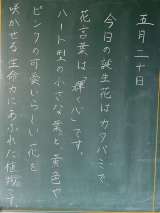 五月二十日
今日の誕生花はカタバミで
花言葉は「輝く心」です。
ハート型の小さな葉と、黄色や
ピンクの可愛いらしい花を
咲かせる生命力にあふれた植物です。